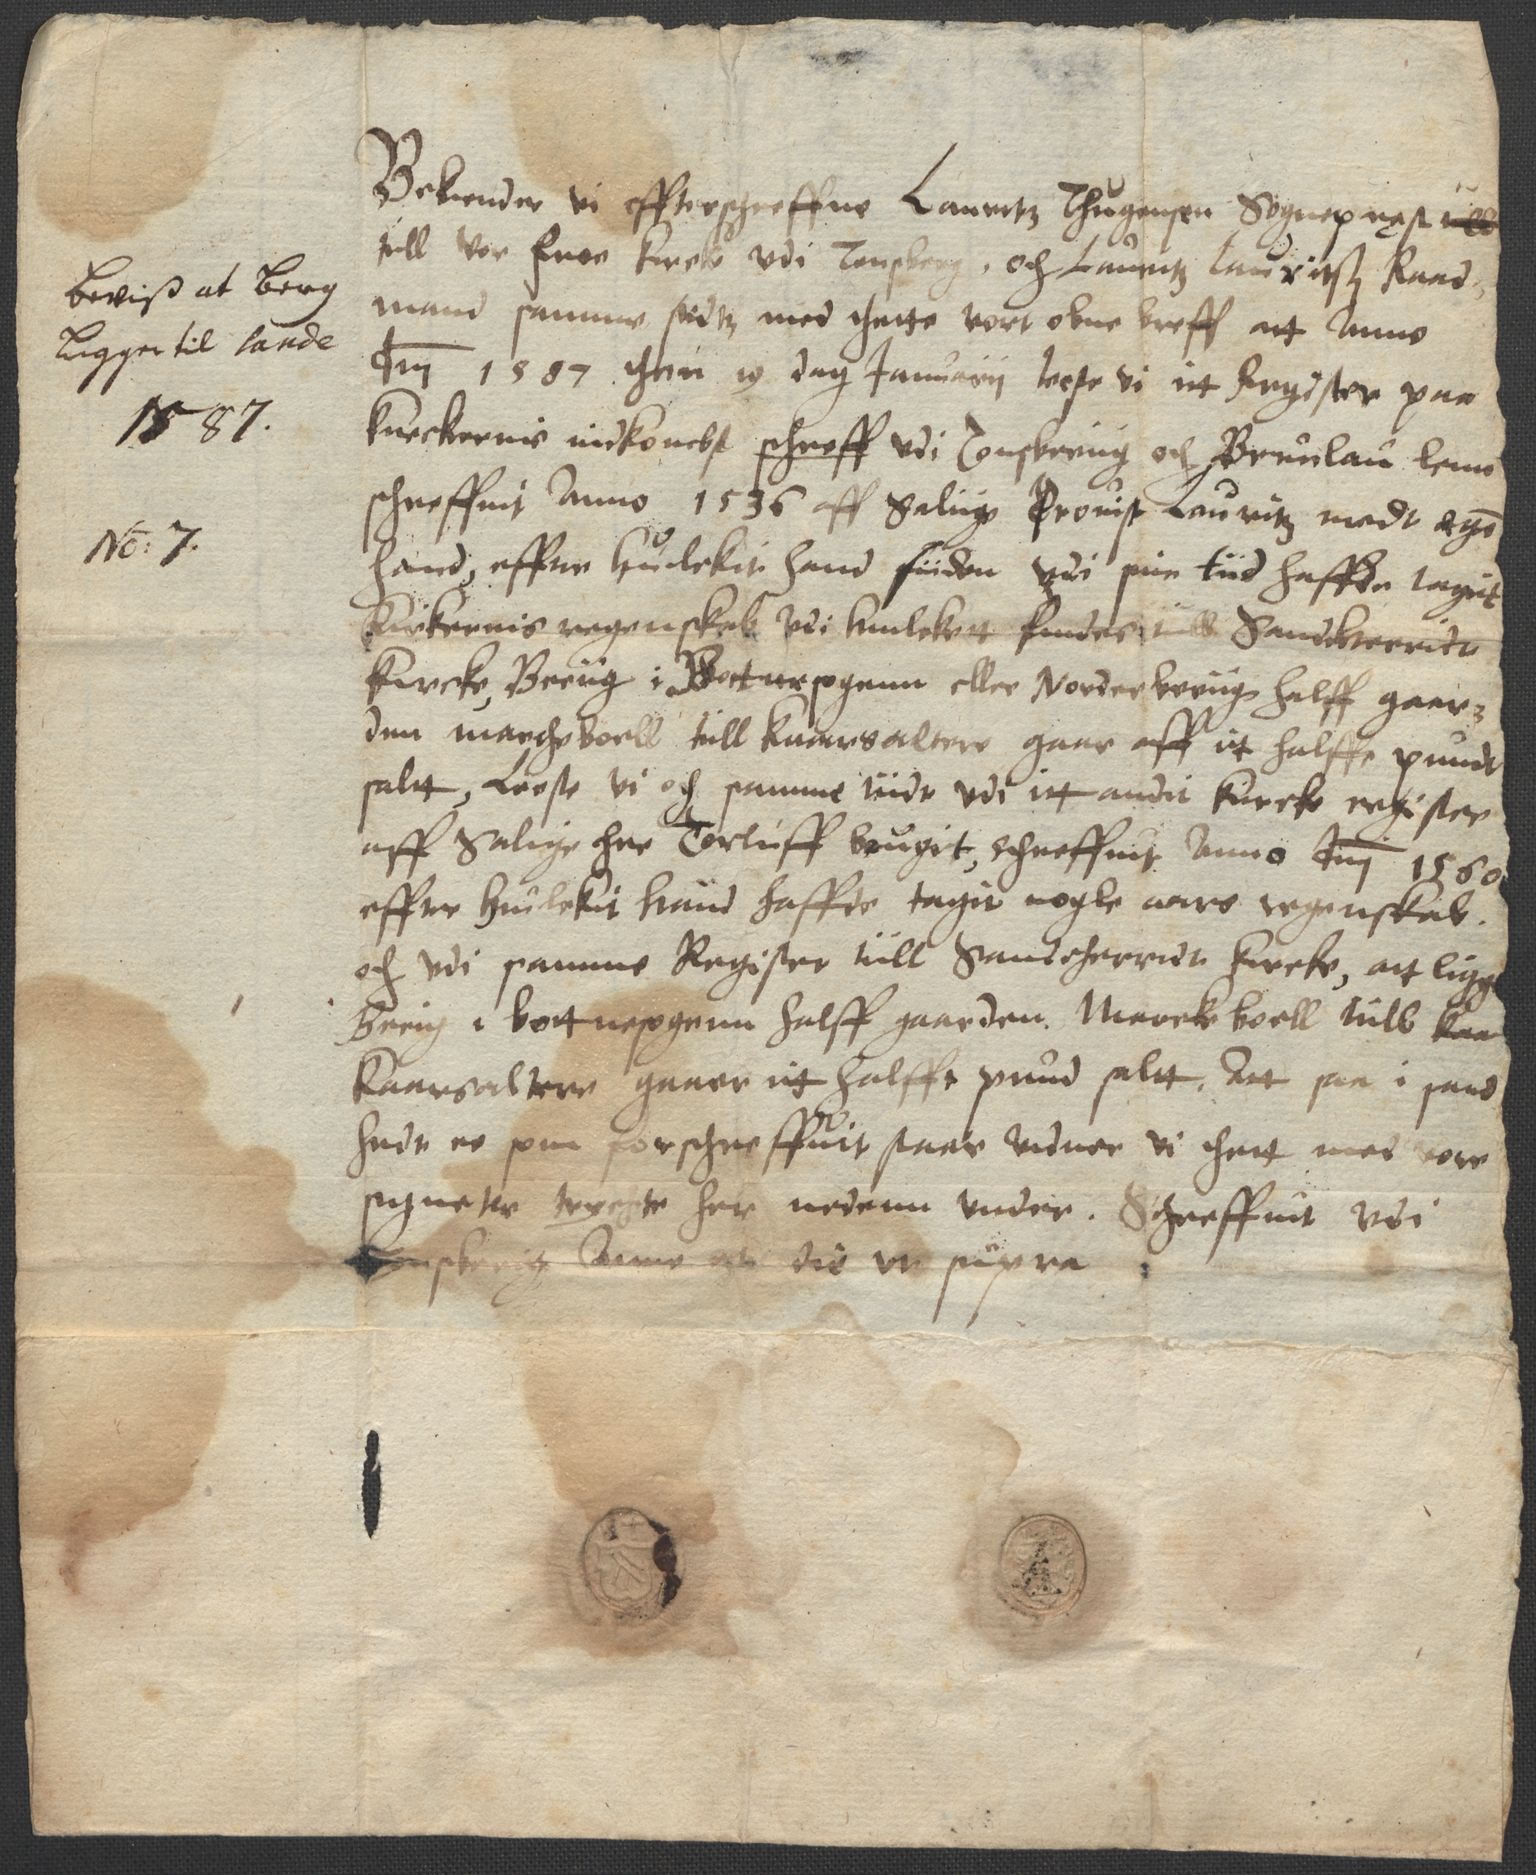 Beviß at Berg
Ligger til lande
1587.
No: 7.
Bekiender vi effterschreffne Lauritz Thugensen Sogneprest
till vor Frve kircke vdi Tonsberg, och Lauritz Lauritzß Raad,
mand samme stedtz med thette vort obne breff att Anno
dni 1587 then 19 dag Januarij leeste vi it Register paa
kirckernis indkombst schreff vdi Tonsberiig och Brunlau leene
schreffuit Anno 1536 aff Salige Prouist Lauritz medt egē
hand, effter huilckit hand siiden vdi sin tiid haffde tagiit
kirkernis regenskab vdi huilckit findes till Sandeherridt
kircke, Beriig i Bottnesogenn eller Norderberiig halff gaar-
den marcheboell till kaarsaltere gaar aff it halffe pundt
saltt, Leeste vi och samme tiidt vdi itt andit kircke register
aff Salige her Torluff brugit, schreffuit Anno dni 1560
effter huilckit hand haffde tagit nogle aars regenskab.
och vdi samme Register till Sandeherridt kircke, att ligge
Beriig i bottnesogenn halff gaarden. Marckeboell till
kaarsaltere gaar it halffe pund saltt. Att saa i sand
hedt er som forschreffuit staar vidner vi thett med vore
signeter tryckte her nedenn vnder. Schreffuit vdi
Tonsberiig Anno et die vt supra